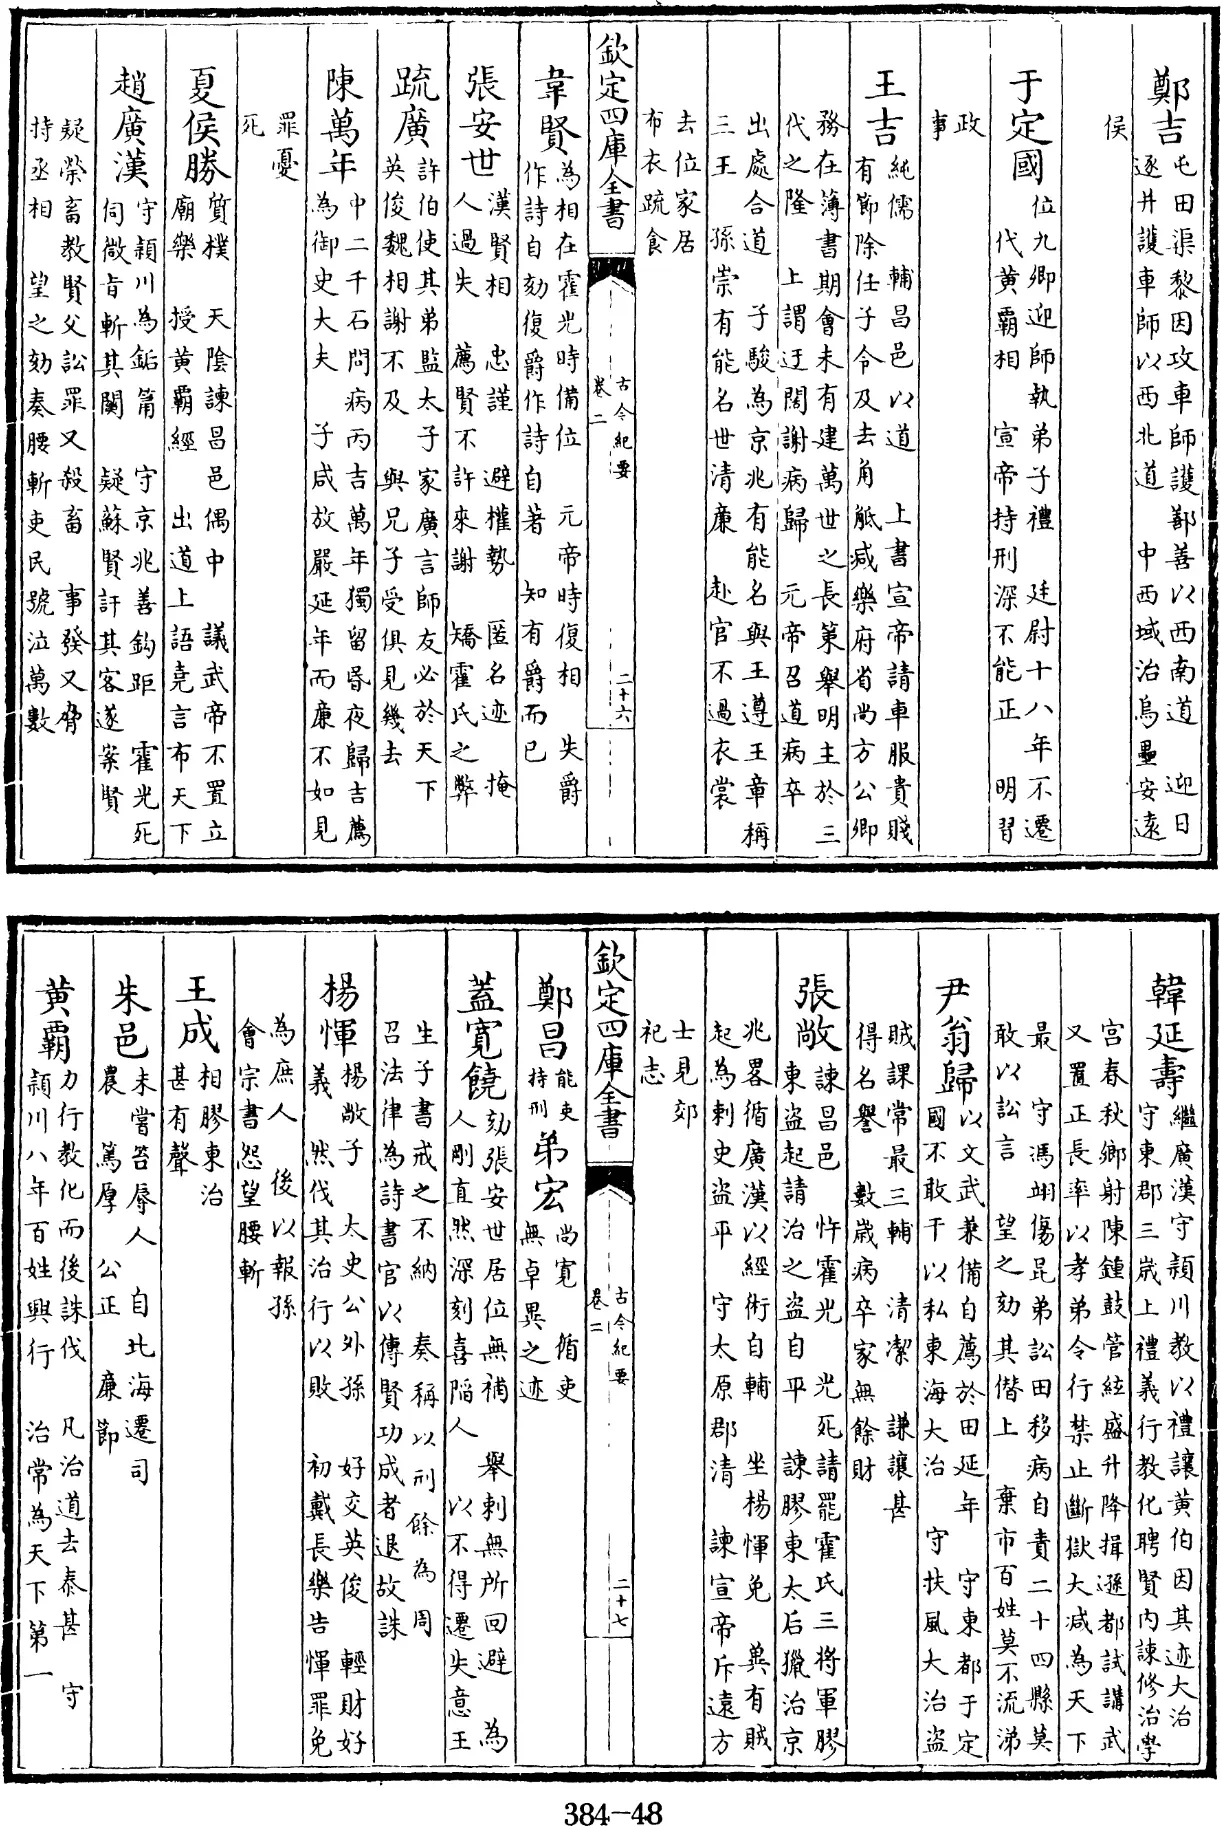 鄭吉 屯田渠黎因攻車師護鄯善以西南道 迎日
逐并護車師以西北道 中西域治烏壘安遠
侯
于定國 位九卿迎師執弟子禮 廷尉十八年不遷
代黄霸相 宣帝持刑深不能正 明習
政
事
王吉 純儒 輔昌邑以道 上書宣帝請車服貴賤
有節除任子令及去角觝減樂府省尚方公卿
務在薄書期會未有建萬世之長策舉明主於三
代之隆 上謂迂闊謝病歸 元帝召道病卒
出處合道 子駿為京兆有能名與王遵王章稱
三王 孫崇有能名世清廉 赴官不過衣裳
去位家居
布衣疏食
欽定四庫全書 古今紀要 卷二 二十六
韋賢 為相在霍光時備位 元帝時復相 失爵
作詩自劾復爵作詩自著 知有爵而已
張安世 漢賢相 忠謹 避權勢 匿名迹 掩
人過失 薦賢不許來謝 矯霍氏之弊
疏廣 許伯使其弟監太子家廣言師友必於天下
英俊魏相謝不及 與兄子受俱見幾去
陳萬年 中二千石問病丙吉萬年獨留昏夜歸吉薦
為御史大夫 子咸放嚴延年而廉不如見
罪憂
死
夏侯勝 質樸 天陰諫昌邑偶中 議武帝不置立
廟樂 授黄霸經 出道上語堯言布天下
趙廣漢 守潁川為缿筩 守京兆善鈎距 霍光死
伺微旨斬其闗 疑蘇賢訐其客遂案賢
疑榮畜教賢父訟罪又殺畜 事發又脅
持丞相 望之劾奏腰斬吏民號泣萬數
韓延壽 繼廣漢守頴川教以禮讓黄伯因其迹大治
守東郡三嵗上禮義行教化聘賢内諫修治學
宫春秋鄉射陳鍾鼓管絃盛升降揖遜都試講武
又置正長率以孝弟令行禁止斷獄大減為天下
最 守馮翊傷昆弟訟田移病自責二十四縣莫
敢以訟言 望之劾其僭上 棄市百姓莫不流涕
尹翁歸 以文武兼備自薦於田延年 守東都于定
國不敢干以私東海大治 守扶風大治盜
賊課常最三輔 清潔 謙讓甚
得名譽 數嵗病卒家無餘財
張敞 諫昌邑 忤霍光 光死請罷霍氏三将軍膠
東盜起請治之盜自平 諫膠東太后獵治京
兆畧循廣漢以經術自輔 坐楊惲免 兾有賊
起為刺史盜平 守太原郡清 諫宣帝斥遠方
士見郊
祀志
欽定四庫全書 古今紀要 卷二 二十七
鄭昌 能吏
持刑 弟宏 尚寛 循吏
無卓異之迹
蓋寛饒 劾張安世居位無補 舉刺無所回避 為
人剛直然深刻喜陷人 以不得遷失意王
生子書戒之不納 奏稱以刑餘為周
召法律為詩書官以傳賢功成者退故誅
楊惲 楊敞子 太史公外孫 好交英俊 輕財好
義 然伐其治行以敗 初戴長樂告惲罪免
為庶人 後以報孫
會宗書怨望腰斬
王成 相膠東治
甚有聲
朱邑 未嘗笞辱人 自北海遷司
農 篤厚 公正 廉節
黄霸 力行教化而後誅伐 凡治道去泰甚 守
頴川八年百姓興行 治常為天下第一
384-48